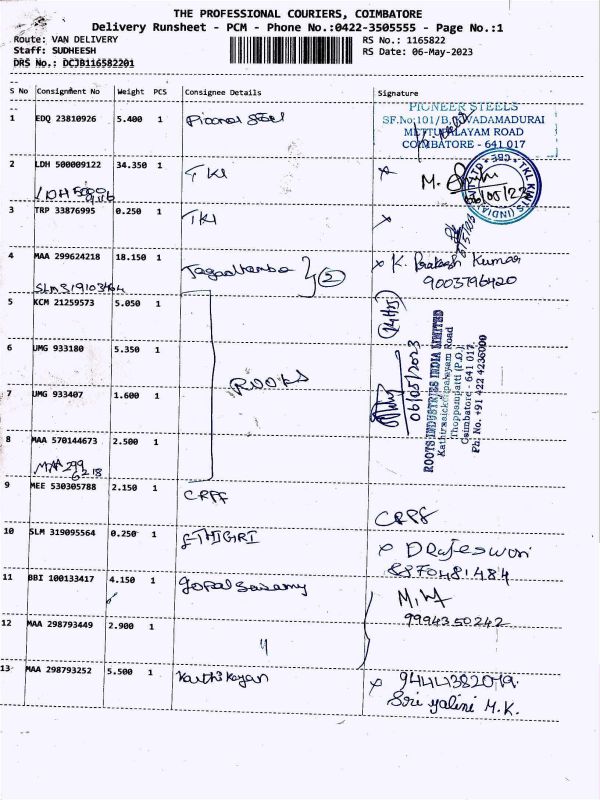 THE PROFESSIONAL COURIERS, COIMBATORE
Delivery Runsheet - PCM - Phone No.:0422-3505555 - Page No.:1
Route: VAN DELIVERY
RS No.: 1165822
Staff: SUDHEESH
RS Date: 06-May-2023
DRS No.: DCJB116582201
S No Consignment No Weight PCS Consignee Details Signature
1 EDQ 23810926 5.400 1
PIONEER STEELS
SF.No:101/B, AVADAMADURAI
METTUPALAYAM ROAD
COIMBATORE - 641 017
2 LDH 500009122 34.350 1 TKI
M.
06/05/23
LDH 5000
3 TRP 33876995 0.250 1 TKI
4 MAA 299624218 18.150 1 Jagadhamba 2
K. Prakash Kumar
9003796420
SLM 319103764
5 KCM 21259573 5.050 1
6 UMG 933180 5.350 1
ROOKS
06/05/2023
ROOTS INDUSTRIES INDIA LIMITED
Kathirnaickenpalayam Road
Thoppampatti (P.O.)
Coimbatore - 641 017.
Ph: No. +91 422 4236000
7 UMG 933407 1.600 1
8 MAA 570144673 2.500 1
MAA 299
6218
9 MEE 530305788 2.150 1 CRPF
CRPF
10 SLM 319095564 0.250 1
D Rajeswari
8870481484
11 BBI 100133417 4.150 1 gopalsamy
M.M
9994350242
12 MAA 298793449 2.900 1 4
13 MAA 298793252 5.500 1 Karthikeyan
9444382079.
Sri yalini M.K.